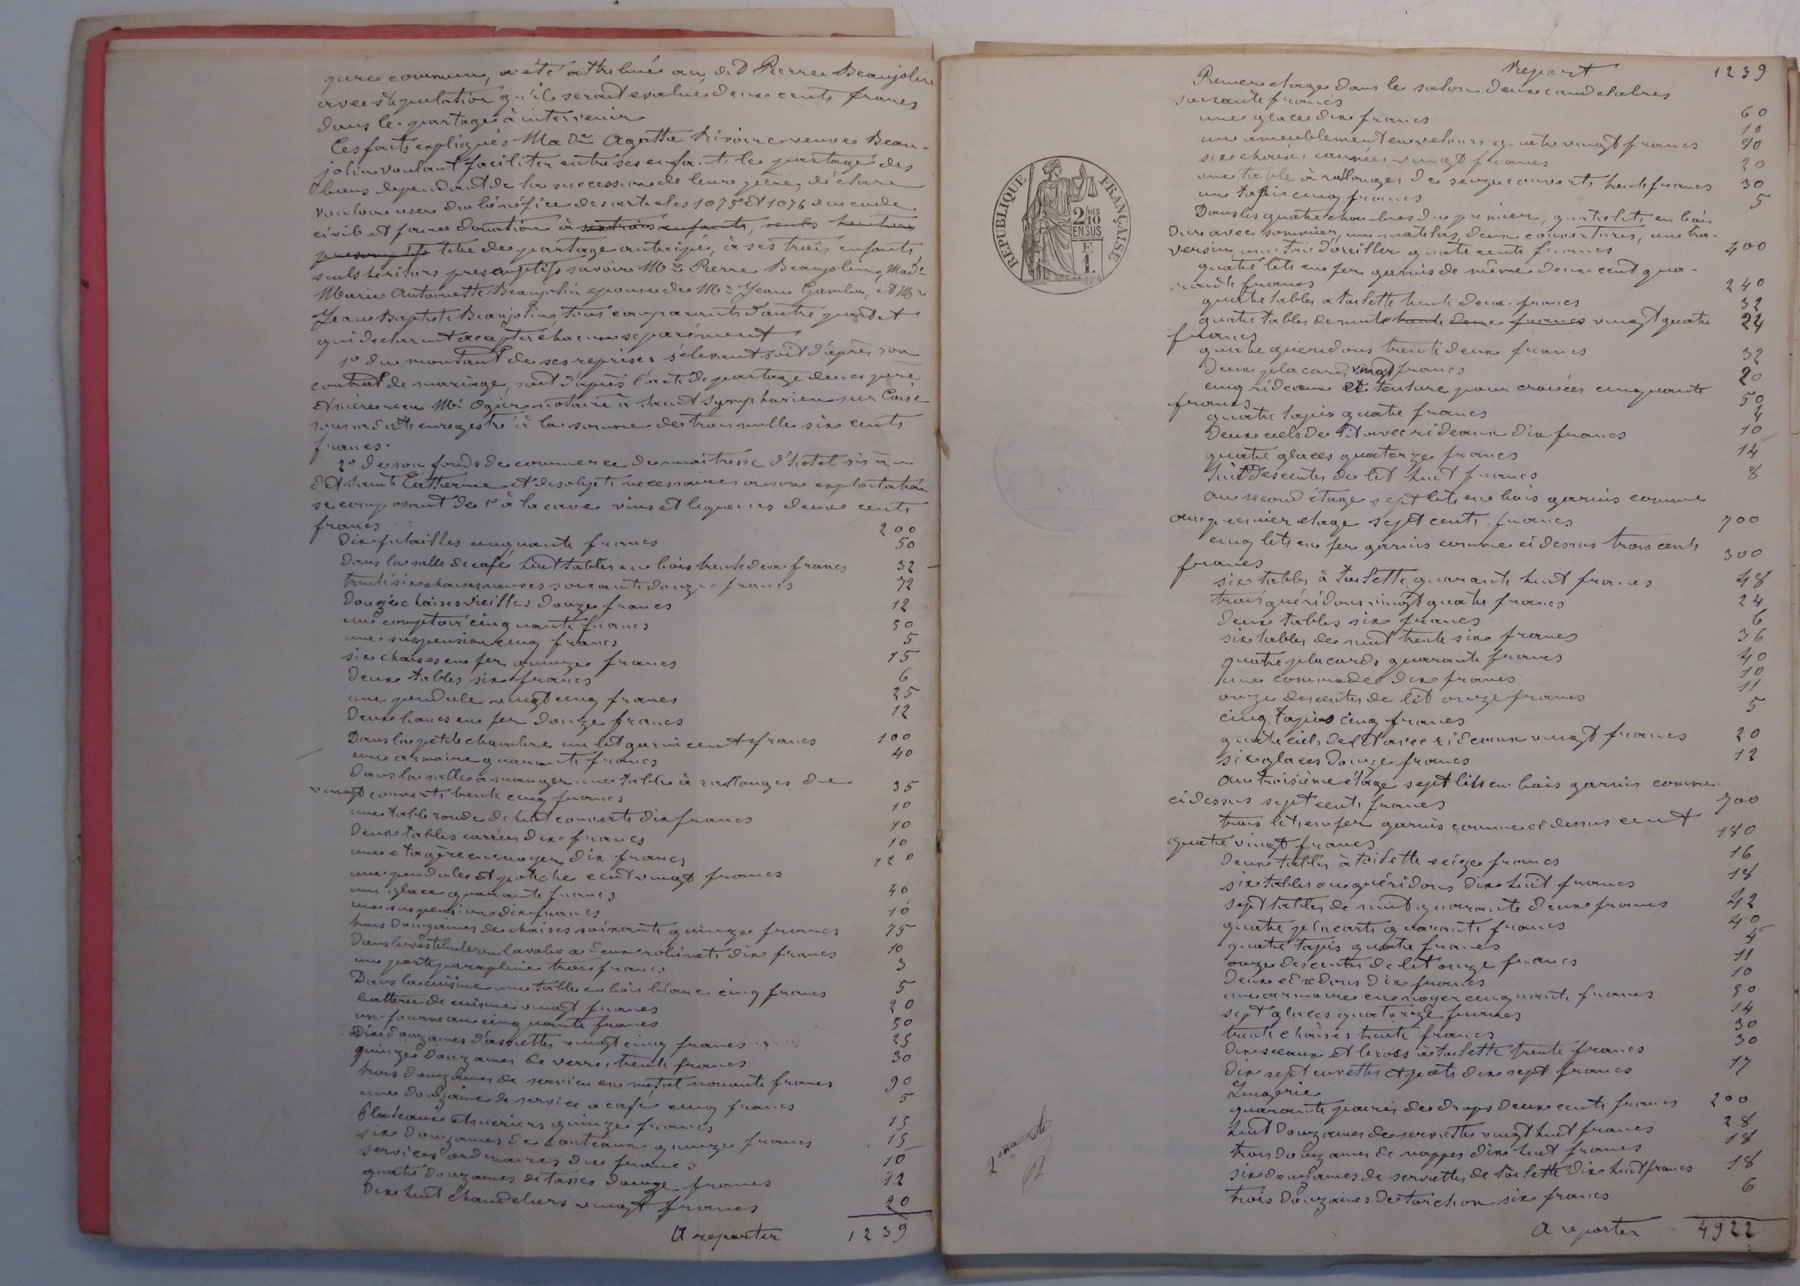 gures commun, a été attribué au dit Pierre Beaujolin
avec stipulation qu'il serait évalué deux cents francs
dans le partage à intervenir
Ces faits expliqués Made Agathe Rivoire veuve Beau-
jolin voulant faciliter entre ses enfants le partage des
biens dépendant de la succession de leur père, déclare
vouloir user du bénéfice des articles 1075 et 1076 du code
civil et faire donation à ses trois enfants, seuls héritiers
présomptifs titre de partage anticipé, à ses trois enfants,
seuls héritiers présomptifs savoir Mr Pierre Beaujolin, Made
Marie Antoinette Beaujolin épouse de Mr Jean Gambu, et Mr
Jean Baptiste Beaujolin tous comparants d'autre part et
qui déclarent accepter chacun séparément
1o du montant de ses reprises s'élevant soit d'après son
contrat de mariage, soit d'après l'acte de partage de ses père
et mère reçu Me Ogier notaire à Saint Symphorien sur Coise
sous sa date enregistré à la somme de trois mille six cents
francs.
2o de son fonds de commerce de maîtresse d'hotel sis à
Sainte Catherine et des objets nécessaires à son exploitation
se composant de 1o à la cave vins et liqueurs deux cents
francs 200
dix futailles cinquante francs 50
dans la salle de café huit tables en bois trente deux francs 32
trente six chaises neuves soixante douze francs 72
douze chaises vieilles douze francs 12
un comptoir cinquante francs 50
une suspension cinq francs 5
six chaises en fer quinze francs 15
deux tables six francs 6
une pendule vingt cinq francs 25
deux bancs en fer douze francs 12
Dans la petite chambre un lit garni cent francs 100
une armoire quarante francs 40
Dans la salle à manger une table à rallonges de
vingt couverts trente cinq francs 35
une table ronde de huit couverts dix francs 10
deux tables carrées dix francs 10
une étagère en noyer dix francs 10
une pendule et potiche cent vingt francs 120
une glace quarante francs 40
une suspension dix francs 10
trois douzaines de chaises soixante quinze francs 75
dans le vestibule un lavabo à deux robinets dix francs 10
un porte parapluie trois francs 3
Dans la cuisine une table en bois blanc cinq francs 5
batterie de cuisine vingt francs 20
un fourneau cinquante francs 50
Dix douzaines d'assiettes vingt cinq francs 25
quinze douzaines de verres trente francs 30
trois douzaines de service en métal nonante francs 90
une douzaine de service à café cinq francs 5
Plateaux et sucriers quinze francs 15
six douzaines de couteaux quinze francs 15
services ordinaires dix francs 10
quatre douzaines de tasses douze francs 12
dix huit chandeliers vingt francs 20
A reporter 1239
Report 1239
Premier étage dans le salon deux candelabres
soixante francs 60
une glace dix francs 10
un ameublement en velours quatre vingt francs 80
six chaises cannées vingt francs 20
une table à rallonges de seize couverts trente francs 30
un tapis cinq francs 5
Dans les quatre chambres du premier, quatre lits en bois
dur avec sommier, un matelas, deux couvertures, un tra-
versin, une taie d'oreiller quatre cents francs 400
quatre lits en fer garnis de même deux cent qua-
rante francs 240
quatre tables à toilette trente deux francs 32
quatre tables de nuit trente deux francs vingt quatre 24
francs
quatre guéridons trente deux francs 32
deux placards vingt francs 20
cinq rideaux et tenture pour croisées cinquante
francs 50
quatre tapis quatre francs 4
Deux ciels de lit avec rideaux dix francs 10
quatre glaces quatorze francs 14
huit descentes de lit huit francs 8
Au second étage sept lits en bois garnis comme
au premier étage sept cents francs 700
cinq lits en fer garnis comme ci dessus trois cents
francs 300
six tables à toilette quarante huit francs 48
trois guéridons vingt quatre francs 24
deux tables six francs 6
six tables de nuit trente six francs 36
quatre placards quarante francs 40
une commode dix francs 10
onze descentes de lit onze francs 11
cinq tapis cinq francs 5
quatre ciels de lit avec rideaux vingt francs 20
six glaces douze francs 12
Au troisième étage sept lits en bois garnis comme
ci dessus sept cents francs 700
trois lits en fer garnis comme ci dessus cent
quatre vingt francs 180
deux tables à toilette seize francs 16
six tables ou guéridons dix huit francs 18
sept tables de nuit quarante deux francs 42
quatre placarts quarante francs 40
quatre tapis quatre francs 4
onze descentes de lit onze francs 11
deux édredons dix francs 10
une armoire en noyer cinquante francs 50
sept glaces quatorze francs 14
trente chaises trente francs 30
dix seaux et brocs à toilette trente francs 30
dix sept cuvettes et pots dix sept francs 17
Lingerie
quarante paires de draps deux cents francs 200
huit douzaines de serviettes vingt huit francs 28
trois douzaines de nappes dix huit francs 18
six douzaines de serviettes de toilette dix huit francs 18
trois douzaines de torchon six francs 6
A reporter 4922
REPUBLIQUE FRANÇAISE
2/10
EN SUS
F
1.